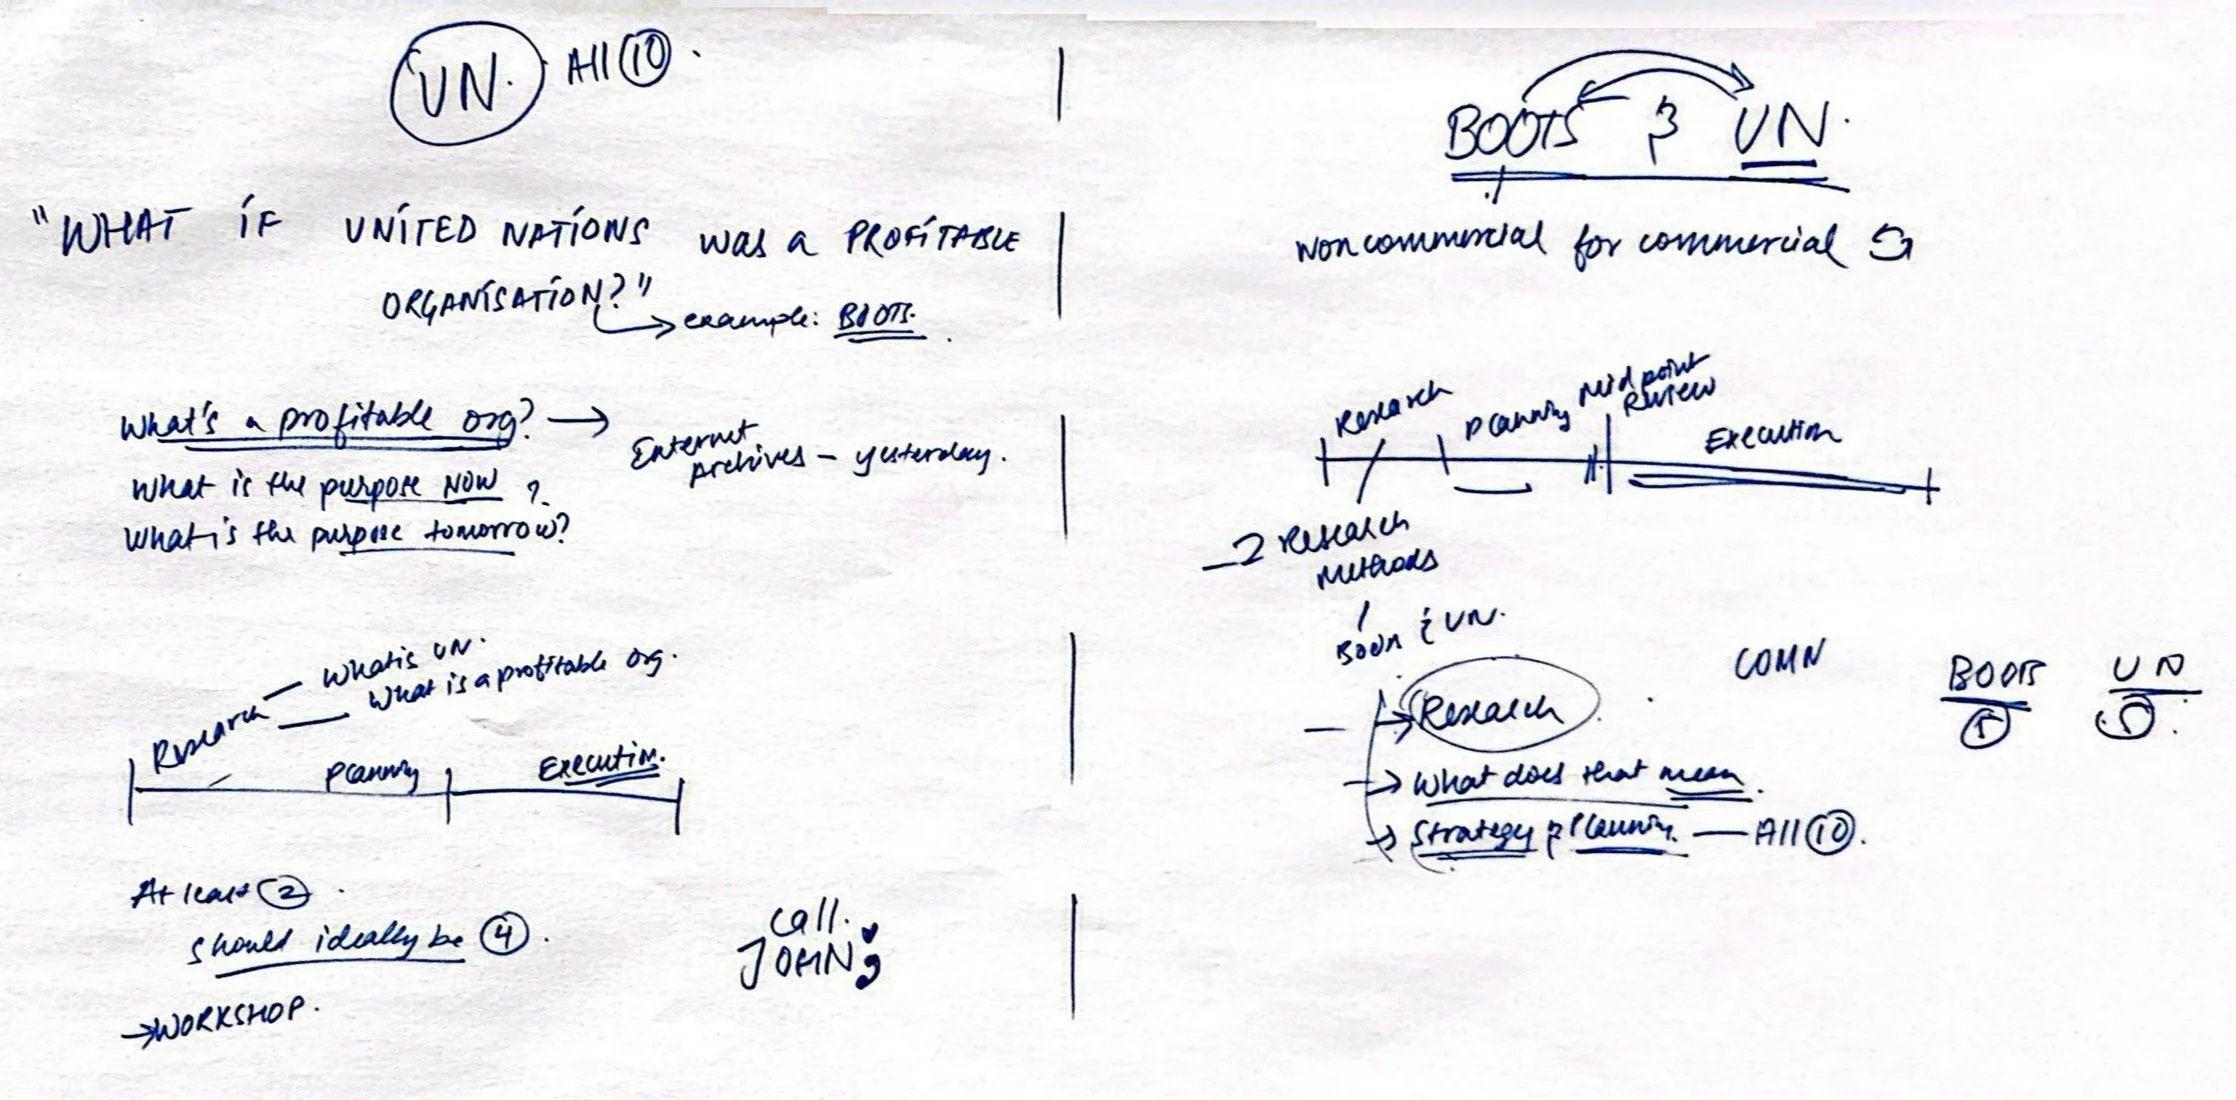 UN. All 10.
"WHAT iF UNiTED NATiONS was a PROFiTABLE
ORGANiSATiON?"
example: BOOTS.
What's a profitable org?
Internet
Archives - yesterday.
What is the purpose NOW ?
What is the purpose tomorrow?
Research
What is UN.
What is a profitable org.
Planning
Execution.
At least 2.
should ideally be 4.
WORKSHOP.
call.
JOHN
BOOTS & UN.
Non commercial for commercial
Research
Planning
Midpoint
Review
Execution
2 Research
Methods
& UN.
Research
What does that mean.
Strategy & Planning. — All 10.
BOOTS
UN